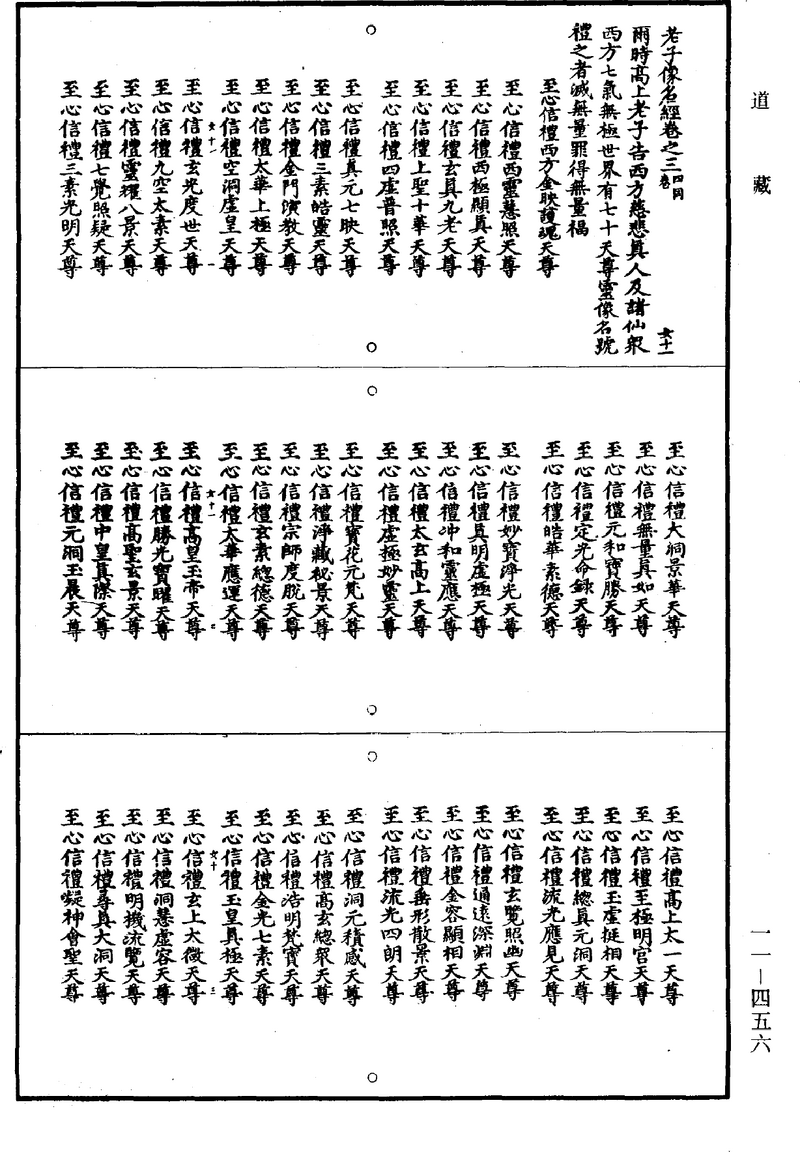 道藏
老子像名經卷之三 四同卷 女十一
爾時高上老子告西方慈悲真人及諸仙眾
西方七氣無極世界有七十天尊靈像名號
禮之者滅無量罪得無量福
至心信禮西方金映護魂天尊
至心信禮西靈慧照天尊
至心信禮西極顯真天尊
至心信禮玄真九老天尊
至心信禮上聖十華天尊
至心信禮四虛普照天尊
至心信禮真元七映天尊
至心信禮三素皓靈天尊
至心信禮金門演教天尊
至心信禮太華上極天尊
至心信禮空洞虛皇天尊
女十一 一
至心信禮玄光度世天尊
至心信禮九空太素天尊
至心信禮靈耀八景天尊
至心信禮七覺照疑天尊
至心信禮三素光明天尊
至心信禮大洞景華天尊
至心信禮無量真如天尊
至心信禮元和寶勝天尊
至心信禮定光命錄天尊
至心信禮皓華素德天尊
至心信禮妙寶淨光天尊
至心信禮真明虛極天尊
至心信禮沖和靈應天尊
至心信禮太玄高上天尊
至心信禮虛極妙靈天尊
至心信禮寶花元梵天尊
至心信禮淨藏秘景天尊
至心信禮宗師度脫天尊
至心信禮玄素總德天尊
至心信禮太華應運天尊
女十一 二
至心信禮高皇玉帝天尊
至心信禮勝光寶曜天尊
至心信禮高聖玄景天尊
至心信禮中皇真際天尊
至心信禮元洞玉晨天尊
至心信禮高上太一天尊
至心信禮至極明官天尊
至心信禮玉虛挺相天尊
至心信禮總真元洞天尊
至心信禮流光應見天尊
至心信禮玄覽照幽天尊
至心信禮通遠深淵天尊
至心信禮金容顯相天尊
至心信禮垂形散景天尊
至心信禮流光四朗天尊
至心信禮洞元積感天尊
至心信禮高玄總眾天尊
至心信禮浩明梵寶天尊
至心信禮金光七素天尊
至心信禮玉皇真極天尊
女十 三
至心信禮玄上太微天尊
至心信禮洞慧虛容天尊
至心信禮明機流覽天尊
至心信禮尋真大洞天尊
至心信禮凝神會聖天尊
一一—四五六